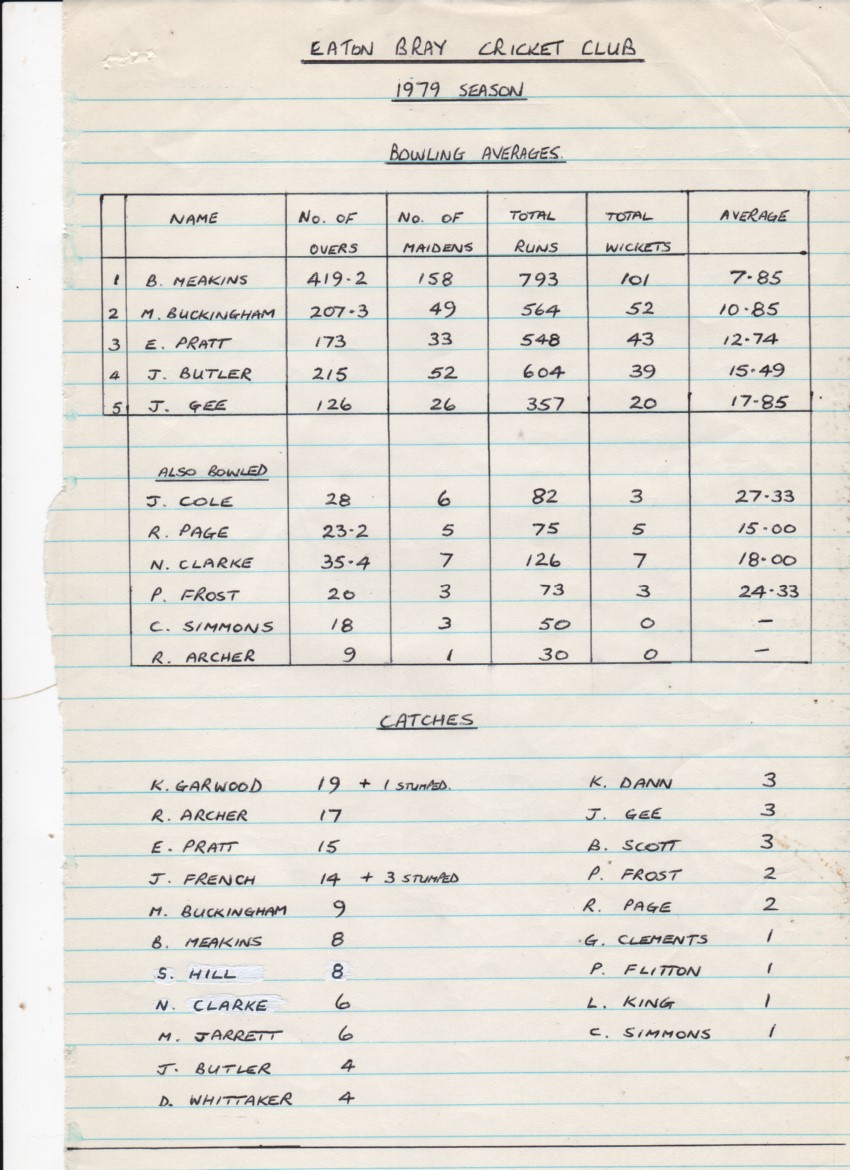 EATON BRAY CRICKET CLUB
1979 SEASON
BOWLING AVERAGES.
NAME No. OF OVERS No. OF MAIDENS TOTAL RUNS TOTAL WICKETS AVERAGE
1 B. MEAKINS 419·2 158 793 101 7·85
2 M. BUCKINGHAM 207·3 49 564 52 10·85
3 E. PRATT 173 33 548 43 12·74
4 J. BUTLER 215 52 604 39 15·49
5 J. GEE 126 26 357 20 17·85
ALSO BOWLED
J. COLE 28 6 82 3 27·33
R. PAGE 23·2 5 75 5 15·00
N. CLARKE 35·4 7 126 7 18·00
P. FROST 20 3 73 3 24·33
C. SIMMONS 18 3 50 0 –
R. ARCHER 9 1 30 0 –
CATCHES
K. GARWOOD 19 + 1 STUMPED.
R. ARCHER 17
E. PRATT 15
J. FRENCH 14 + 3 STUMPED
M. BUCKINGHAM 9
B. MEAKINS 8
S. HILL 8
N. CLARKE 6
M. JARRETT 6
J. BUTLER 4
D. WHITTAKER 4
K. DANN 3
J. GEE 3
B. SCOTT 3
P. FROST 2
R. PAGE 2
G. CLEMENTS 1
P. FLITTON 1
L. KING 1
C. SIMMONS 1